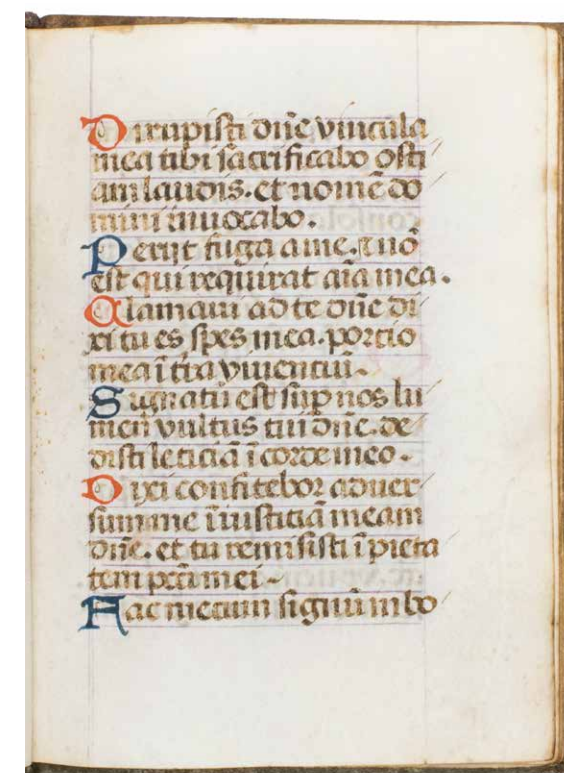 Dirupisti dn̄e vincula
mea tibi sacrificabo osti
am laudis. et nomē do
mini invocabo.
Perijt fuga a me. ⁊ nō
est qui requirat aīa mea.
Clamavi ad te dn̄e di
xi tu es spes mea. portio
mea ī tr̄a viventiū.
Signatū est sup nos lu
men vultus tui dn̄e. de
disti leticiā ī corde meo.
Dixi confitebor adver
sum me īiustitiā meam
dn̄e. et tu remisisti ī pieta
tem pcc̄i mei
Fac mecum signū in bo